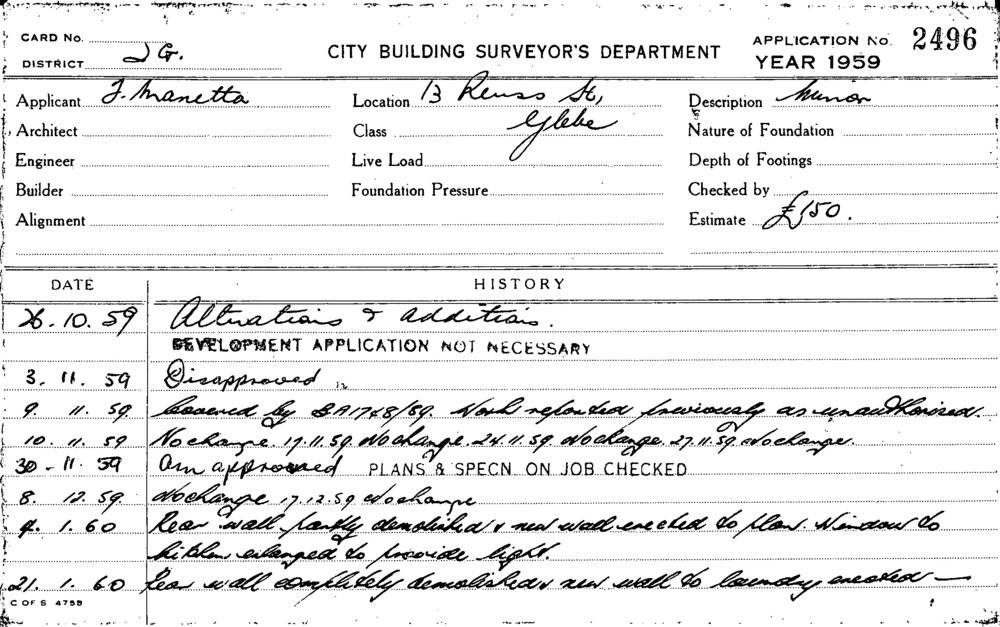 CARD No.
DISTRICT J G.
CITY BUILDING SURVEYOR'S DEPARTMENT
APPLICATION No. 2496
YEAR 1959
Applicant J. Manetta
Location 13 Reuss St,
Description Minor
Architect
Class Glebe
Nature of Foundation
Engineer
Live Load
Depth of Footings
Builder
Foundation Pressure
Checked by
Alignment
Estimate £150.
DATE HISTORY
26.10.59 Alterations & additions.
DEVELOPMENT APPLICATION NOT NECESSARY
3. 11. 59 Disapproved
9. 11. 59 Covered by BA 1748/59. Work reported previously as unauthorised.
10. 11. 59 No change. 17.11.59 No change. 24.11.59 No change. 27.11.59 No change.
30-11.59 Am approved PLANS & SPECN. ON JOB CHECKED
8. 12. 59 No change 17.12.59 No change
4. 1. 60 Rear wall partly demolished & new wall erected to plan. Window to
kitchen enlarged to provide light.
21. 1. 60 Rear wall completely demolished & new wall to laundry erected —
C OF S 4755